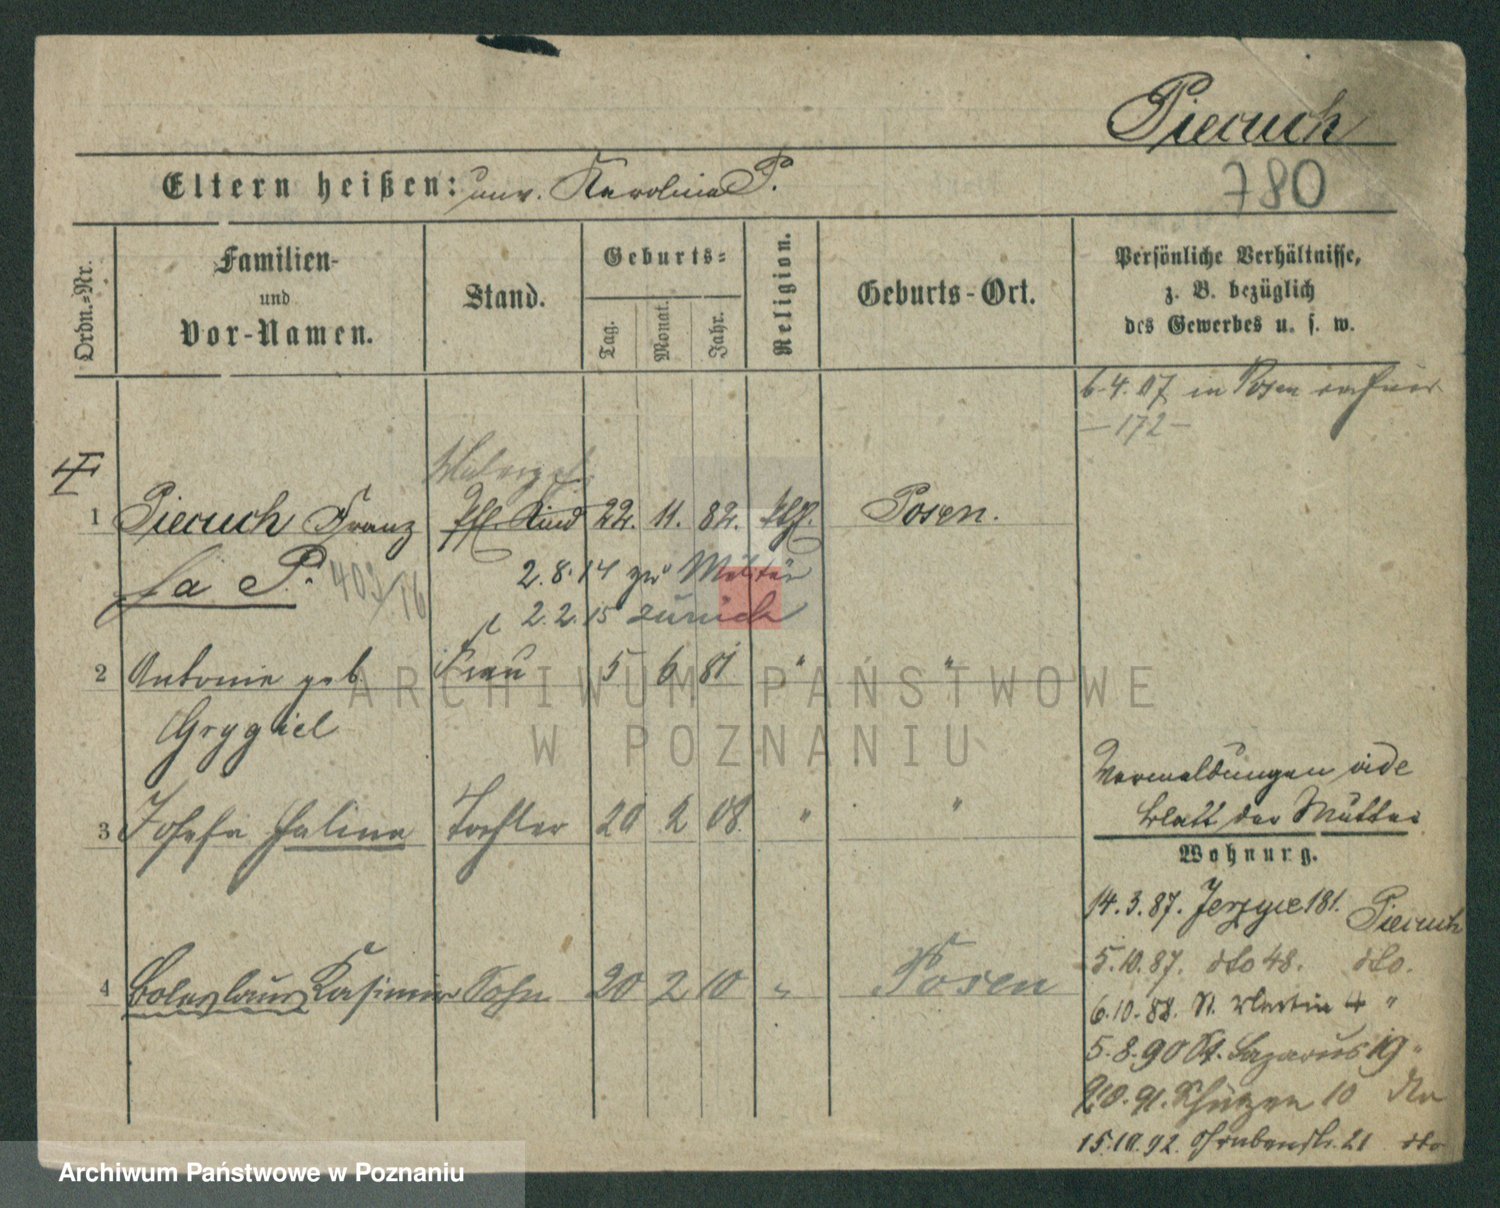 Piecuch
780
Eltern heißen: unv. Karolina P.
Ordn.-Nr.
Familien-
und
Vor-Namen.
Stand.
Geburts-
Tag.
Monat.
Jahr.
Religion.
Geburts-Ort.
Persönliche Verhältnisse,
z. B. bezüglich
des Gewerbes u. s. w.
6.4.07 in Posen
-172-
1 Piecuch Franz Pfl. Kind 22. 11. 82. kth. Posen.
Malergeh.
P. 403/16
2.8.14 zu Militär
2.2.15 zurück
2 Antonie geb. Frau 5 6 81 " "
Grygiel
3 Josefa Halina Tochter 20 2 08. " "
4 Boleslaus Kasimir Sohn 20 2 10 " Posen
Vermeldungen vide
Blatt der Mutter
Wohnung.
14.3.87. Jerzyce 181. Piecuch
5.10.87. dto 48. dto.
6.10.88. St. Martin 4 "
5.8.90 St. Lazarus 19 "
91. Schützen 10 dto
15.10.92. Grabenstr. 21 dto
ARCHIWUM PAŃSTWOWE
W POZNANIU
Archiwum Państwowe w Poznaniu